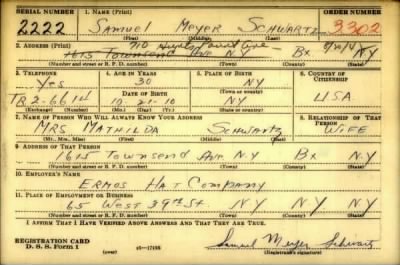 SERIAL NUMBER 1. NAME (Print) ORDER NUMBER
2222 SAMUEL MEYER SCHWARTZ 3302
(First) (Middle) (Last)
2. ADDRESS (Print)
710
1615 Townsend Ave NY Bx NY
(Number and street or R. F. D. number) (Town) (County) (State)
3. TELEPHONE 4. AGE IN YEARS 5. PLACE OF BIRTH 6. COUNTRY OF CITIZENSHIP
Yes 30 NY
DATE OF BIRTH
TR 2-661 10-21-10 NY USA
(Exchange) (Number) (Mo.) (Day) (Yr.) (State or country)
7. NAME OF PERSON WHO WILL ALWAYS KNOW YOUR ADDRESS 8. RELATIONSHIP OF THAT PERSON
MRS MATHILDA SCHWARTZ WIFE
(Mr., Mrs., Miss) (First) (Middle) (Last)
9. ADDRESS OF THAT PERSON
1615 Townsend Ave N.Y Bx N.Y
(Number and street or R. F. D. number) (Town) (County) (State)
10. EMPLOYER'S NAME
ERMOS HAT COMPANY
11. PLACE OF EMPLOYMENT OR BUSINESS
65 WEST 39th St NY NY NY
(Number and street or R. F. D. number) (Town) (County) (State)
I AFFIRM THAT I HAVE VERIFIED ABOVE ANSWERS AND THAT THEY ARE TRUE.
REGISTRATION CARD
D. S. S. Form 1 (over) 16-17105 Samuel Meyer Schwartz
(Registrant's signature)